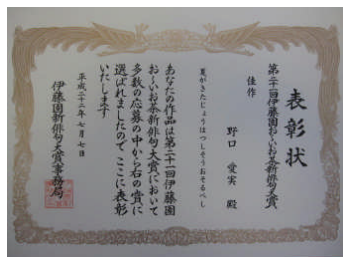 表彰状
第二十一回伊藤園おーいお茶新俳句大賞
佳作
野口 愛実 殿
夏がきたじょうはつしそうおそるべし
あなたの作品は第二十一回伊藤園
おーいお茶新俳句大賞において
多数の応募の中から右の賞に
選ばれましたのでここに表彰
いたします
平成二十二年七月七日
伊藤園新俳句大賞事務局